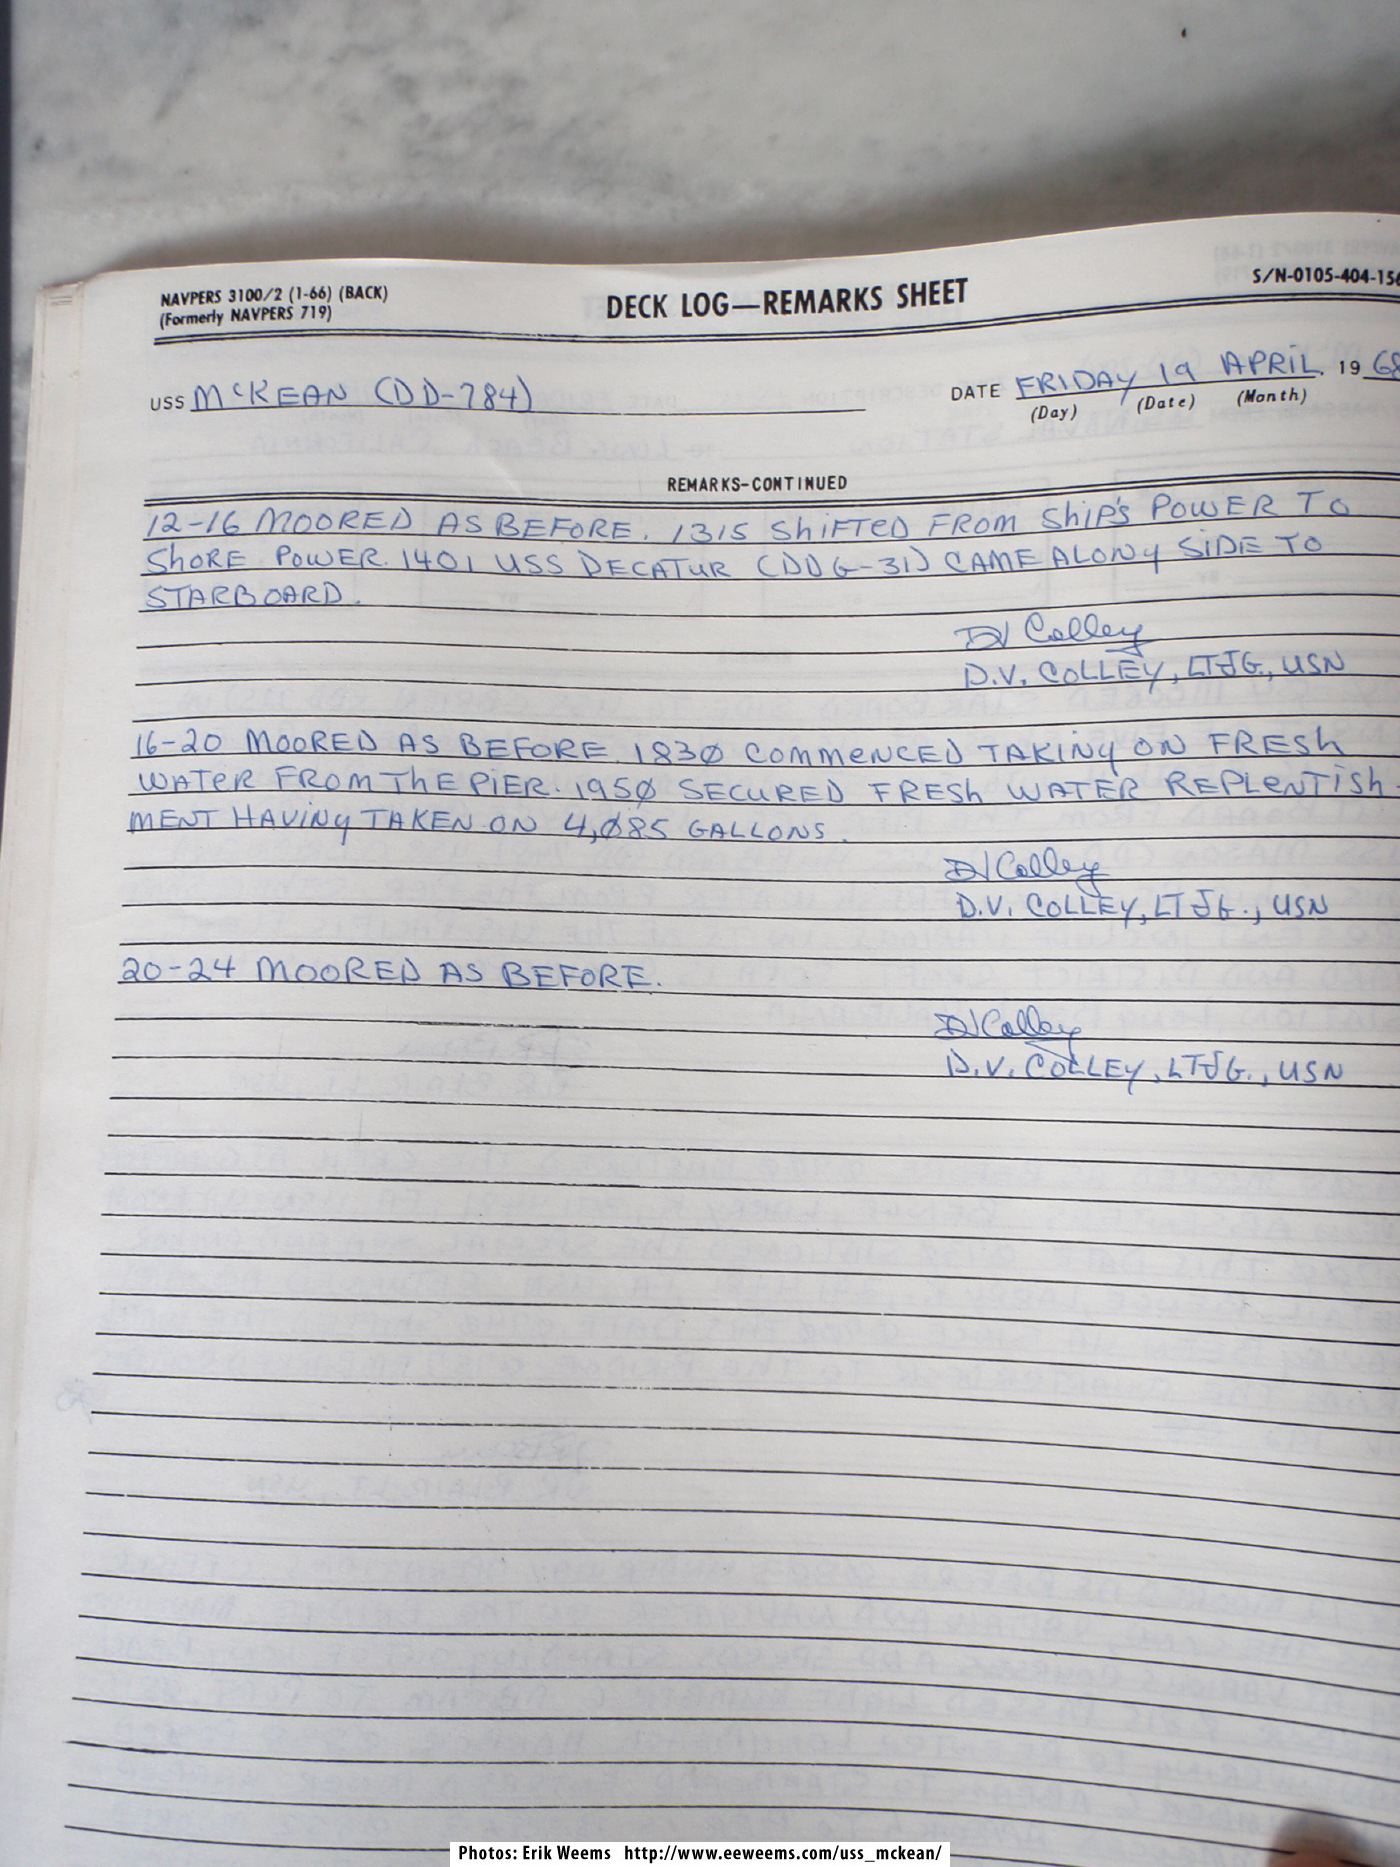 NAVPERS 3100/2 (1-66) (BACK)
(Formerly NAVPERS 719)
DECK LOG—REMARKS SHEET
S/N-0105-404-156
USS McKEAN (DD-784)
DATE FRIDAY 19 APRIL 1968
(Day) (Date) (Month)
REMARKS-CONTINUED
12-16 MOORED AS BEFORE. 1315 SHIFTED FROM SHIP'S POWER TO
SHORE POWER. 1401 USS DECATUR (DDG-31) CAME ALONG SIDE TO
STARBOARD.
DV Colley
D.V. COLLEY, LTJG., USN
16-20 MOORED AS BEFORE. 183Ø COMMENCED TAKING ON FRESH
WATER FROM THE PIER. 195Ø SECURED FRESH WATER REPLENTISH-
MENT HAVING TAKEN ON 4,Ø85 GALLONS.
DV Colley
D.V. COLLEY, LTJG., USN
20-24 MOORED AS BEFORE.
DV Colley
D.V. COLLEY, LTJG., USN
Photos: Erik Weems http://www.eeweems.com/uss_mckean/